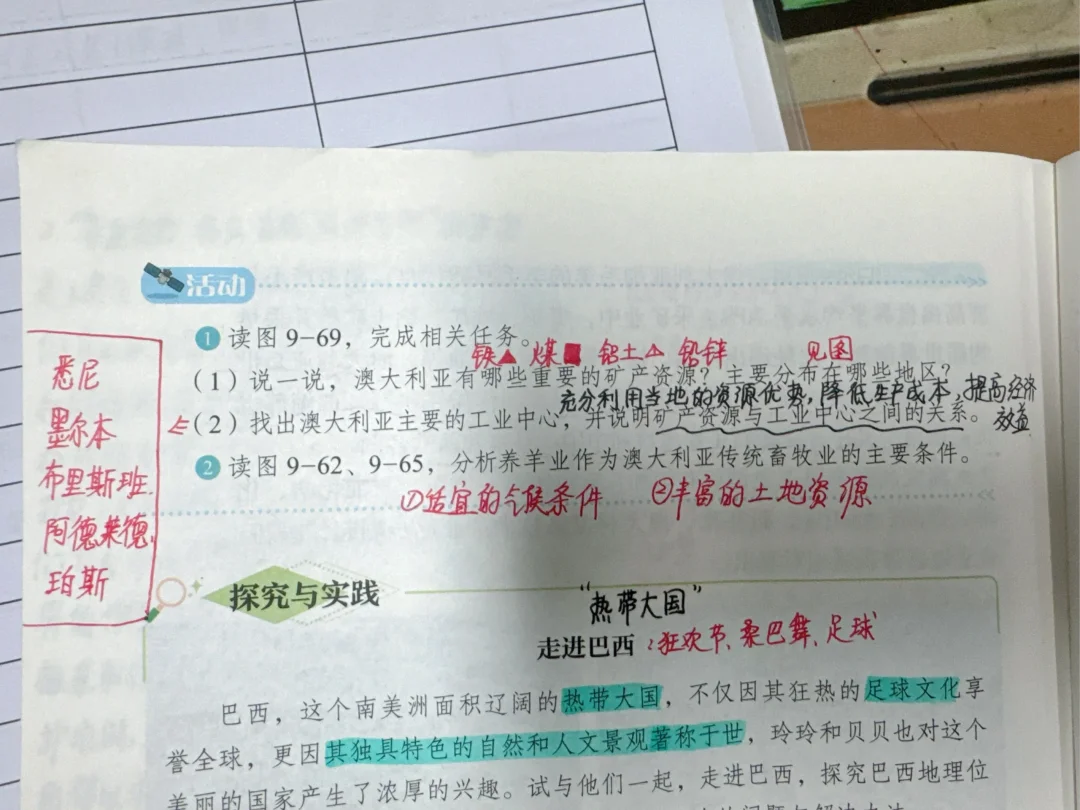 活动
1 读图9-69，完成相关任务。
铁▲ 煤■ 铝土△ 铅锌 见图
（1）说一说，澳大利亚有哪些重要的矿产资源？主要分布在哪些地区？
充分利用当地的资源优势，降低生产成本，提高经济
效益
（2）找出澳大利亚主要的工业中心，并说明矿产资源与工业中心之间的关系。
悉尼
墨尔本
布里斯班
阿德莱德
珀斯
2 读图9-62、9-65，分析养羊业作为澳大利亚传统畜牧业的主要条件。
①适宜的气候条件 ②丰富的土地资源
探究与实践
“热带大国”
走进巴西：狂欢节、桑巴舞、足球
巴西，这个南美洲面积辽阔的热带大国，不仅因其狂热的足球文化享
誉全球，更因其独具特色的自然和人文景观著称于世，玲玲和贝贝也对这个
美丽的国家产生了浓厚的兴趣。试与他们一起，走进巴西，探究巴西地理位